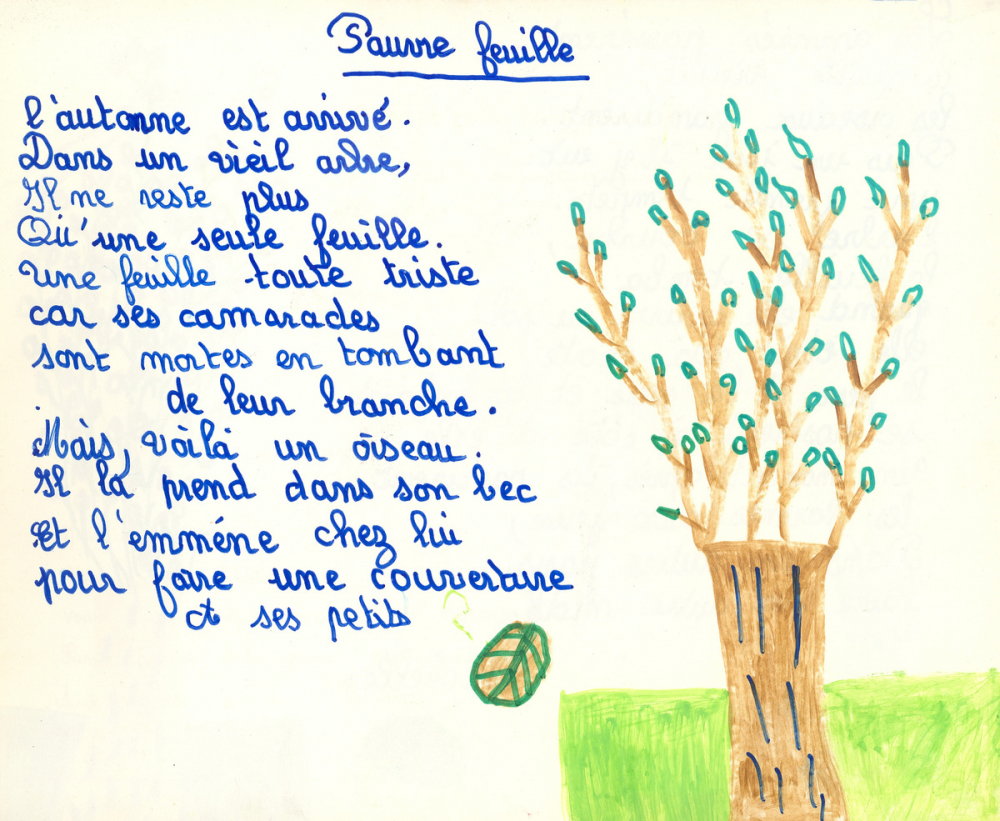 Pauvre feuille
l'automne est arrivé.
Dans un vieil arbre,
Il ne reste plus
Qu'une seule feuille.
Une feuille toute triste
car ses camarades
sont mortes en tombant
de leur branche.
Mais, voilà un oiseau.
Il la prend dans son bec
Et l'emméne chez lui
pour faire une couverture
à ses petits